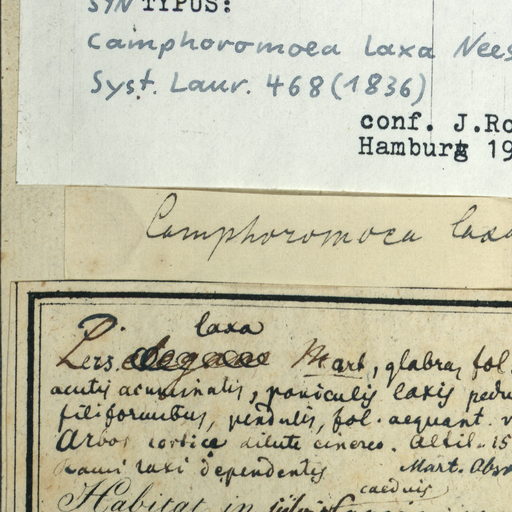 SYNTYPUS:
Camphoromoea laxa Nees
Syst. Laur. 468 (1836)
conf. J.Ro
Hamburg 19
Camphoromoea laxa
laxa
Pers. Mart, glabra, fol.
acutis acuminatis, paniculis laxis pedu
filiformibus, pendulis, fol. aequant.
Arbor cortice dilute cinereo. Altit. 15
Rami laxi dependentes Mart. Obs
caeduis
Habitat in silvis